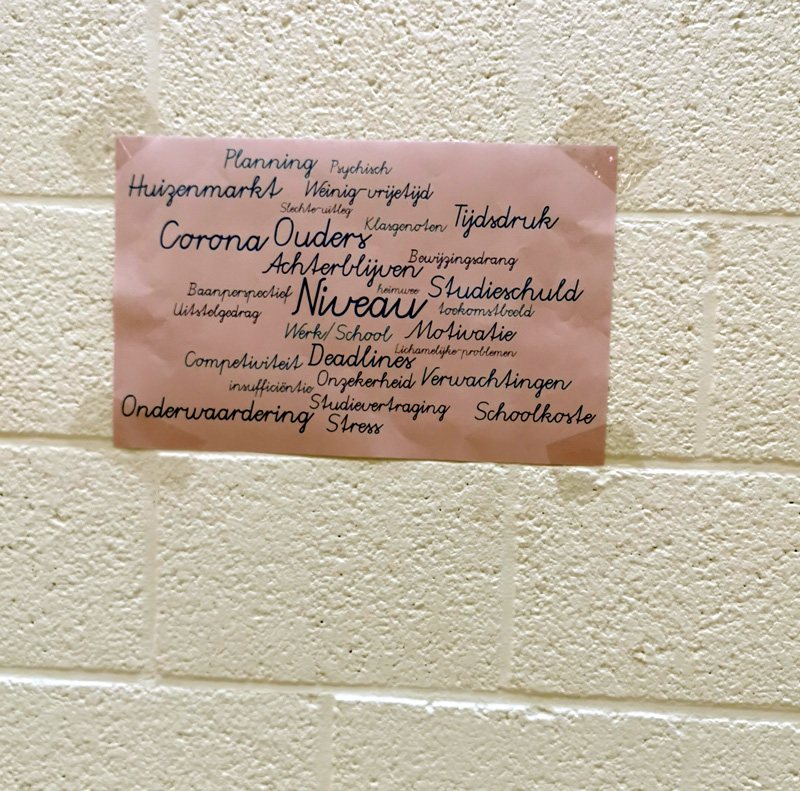 Planning Psychisch
Huizenmarkt Weinig-vrijetijd
Slechte-uitleg
Klasgenoten Tijdsdruk
Corona Ouders
Bewijzingsdrang
Achterblijven
Baanperspectief Niveau heimwee Studieschuld
Uitstelgedrag toekomstbeeld
Werk/School Motivatie
Lichamelijke-problemen
Competiviteit Deadlines
insufficiëntie Onzekerheid Verwachtingen
Onderwaardering Studievertraging Schoolkoste
Stress